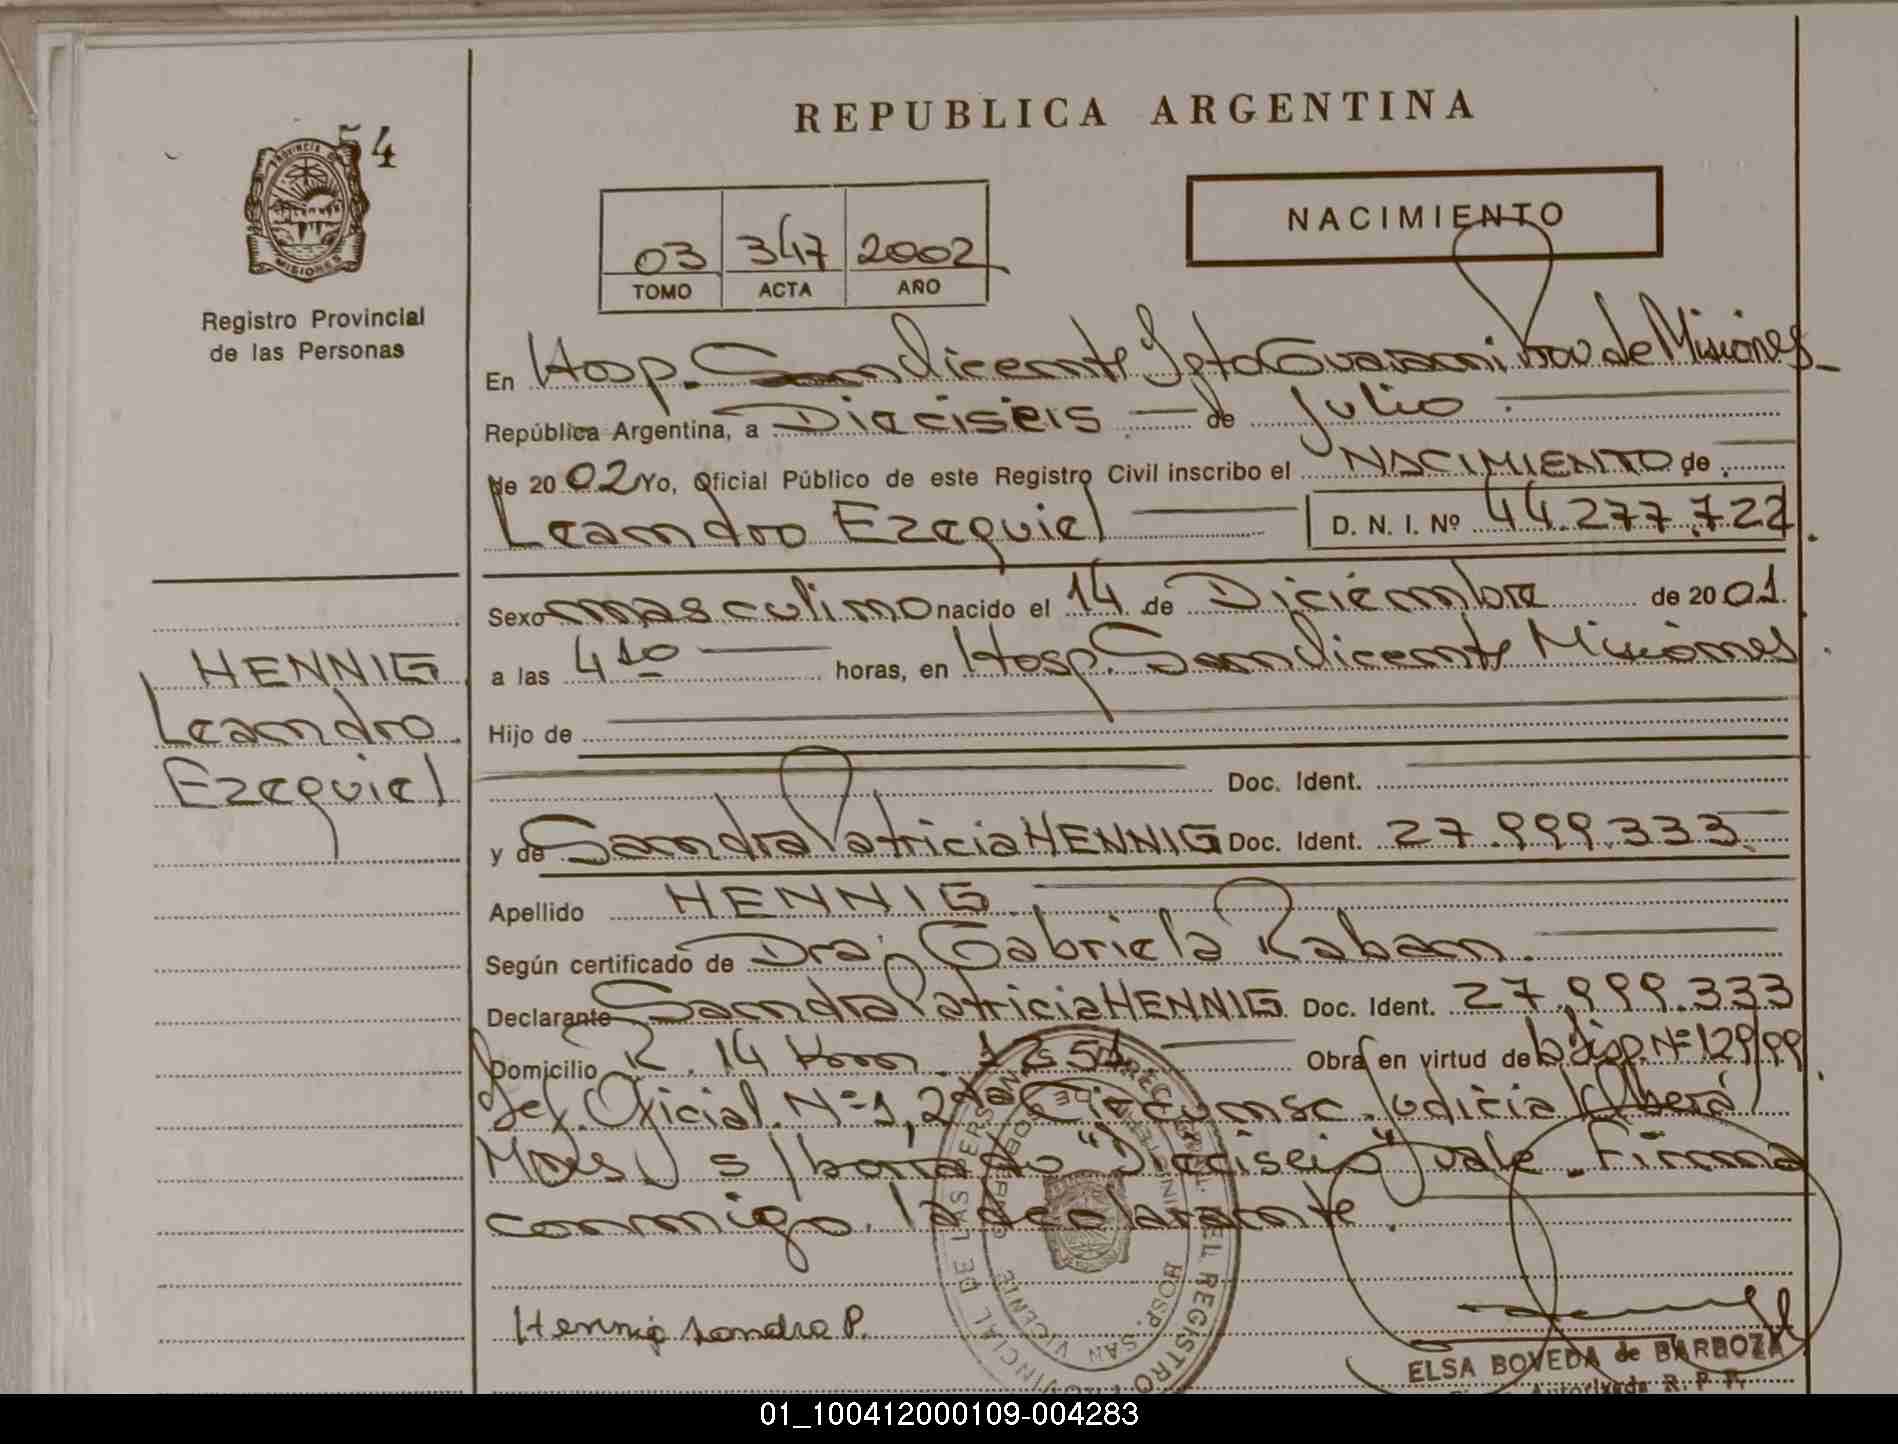 54
PROVINCIA DE
MISIONES
Registro Provincial
de las Personas
REPUBLICA ARGENTINA
03 347 2002
TOMO ACTA AÑO
NACIMIENTO
En Hosp. San Vicente Dpto Guarani Prov de Misiones
República Argentina, a Dieciseis de Julio
de 2002 Yo, Oficial Público de este Registro Civil inscribo el NACIMIENTO de
Leandro Ezequiel D. N. I. Nº 44.277.722
Sexo masculino nacido el 14 de Diciembre de 2001.
a las 4 10 horas, en Hosp. San Vicente Misiones
Hijo de
Doc. Ident.
y de Sandra Patricia HENNIG Doc. Ident. 27.999.333
Apellido HENNIG
Según certificado de Dra. Gabriela Raban
Declarante Sandra Patricia HENNIG Doc. Ident. 27.999.333
Domicilio R. 14 Km. 1251 Obra en virtud de Disp. Nº 129/99
Def. Oficial Nº 1, 2da Circunsc. Judicial Oberá
Mnes s/borrado "Dieciseis" vale. Firma
conmigo la declarante.
HENNIG
Leandro
Ezequiel
Hennig Sandra P.
REGISTRO PROVINCIAL DE LAS PERSONAS
HOSP. SAN VICENTE
ELSA BOVEDA de BARBOZA
Autorizada R. P. P.
01_100412000109-004283